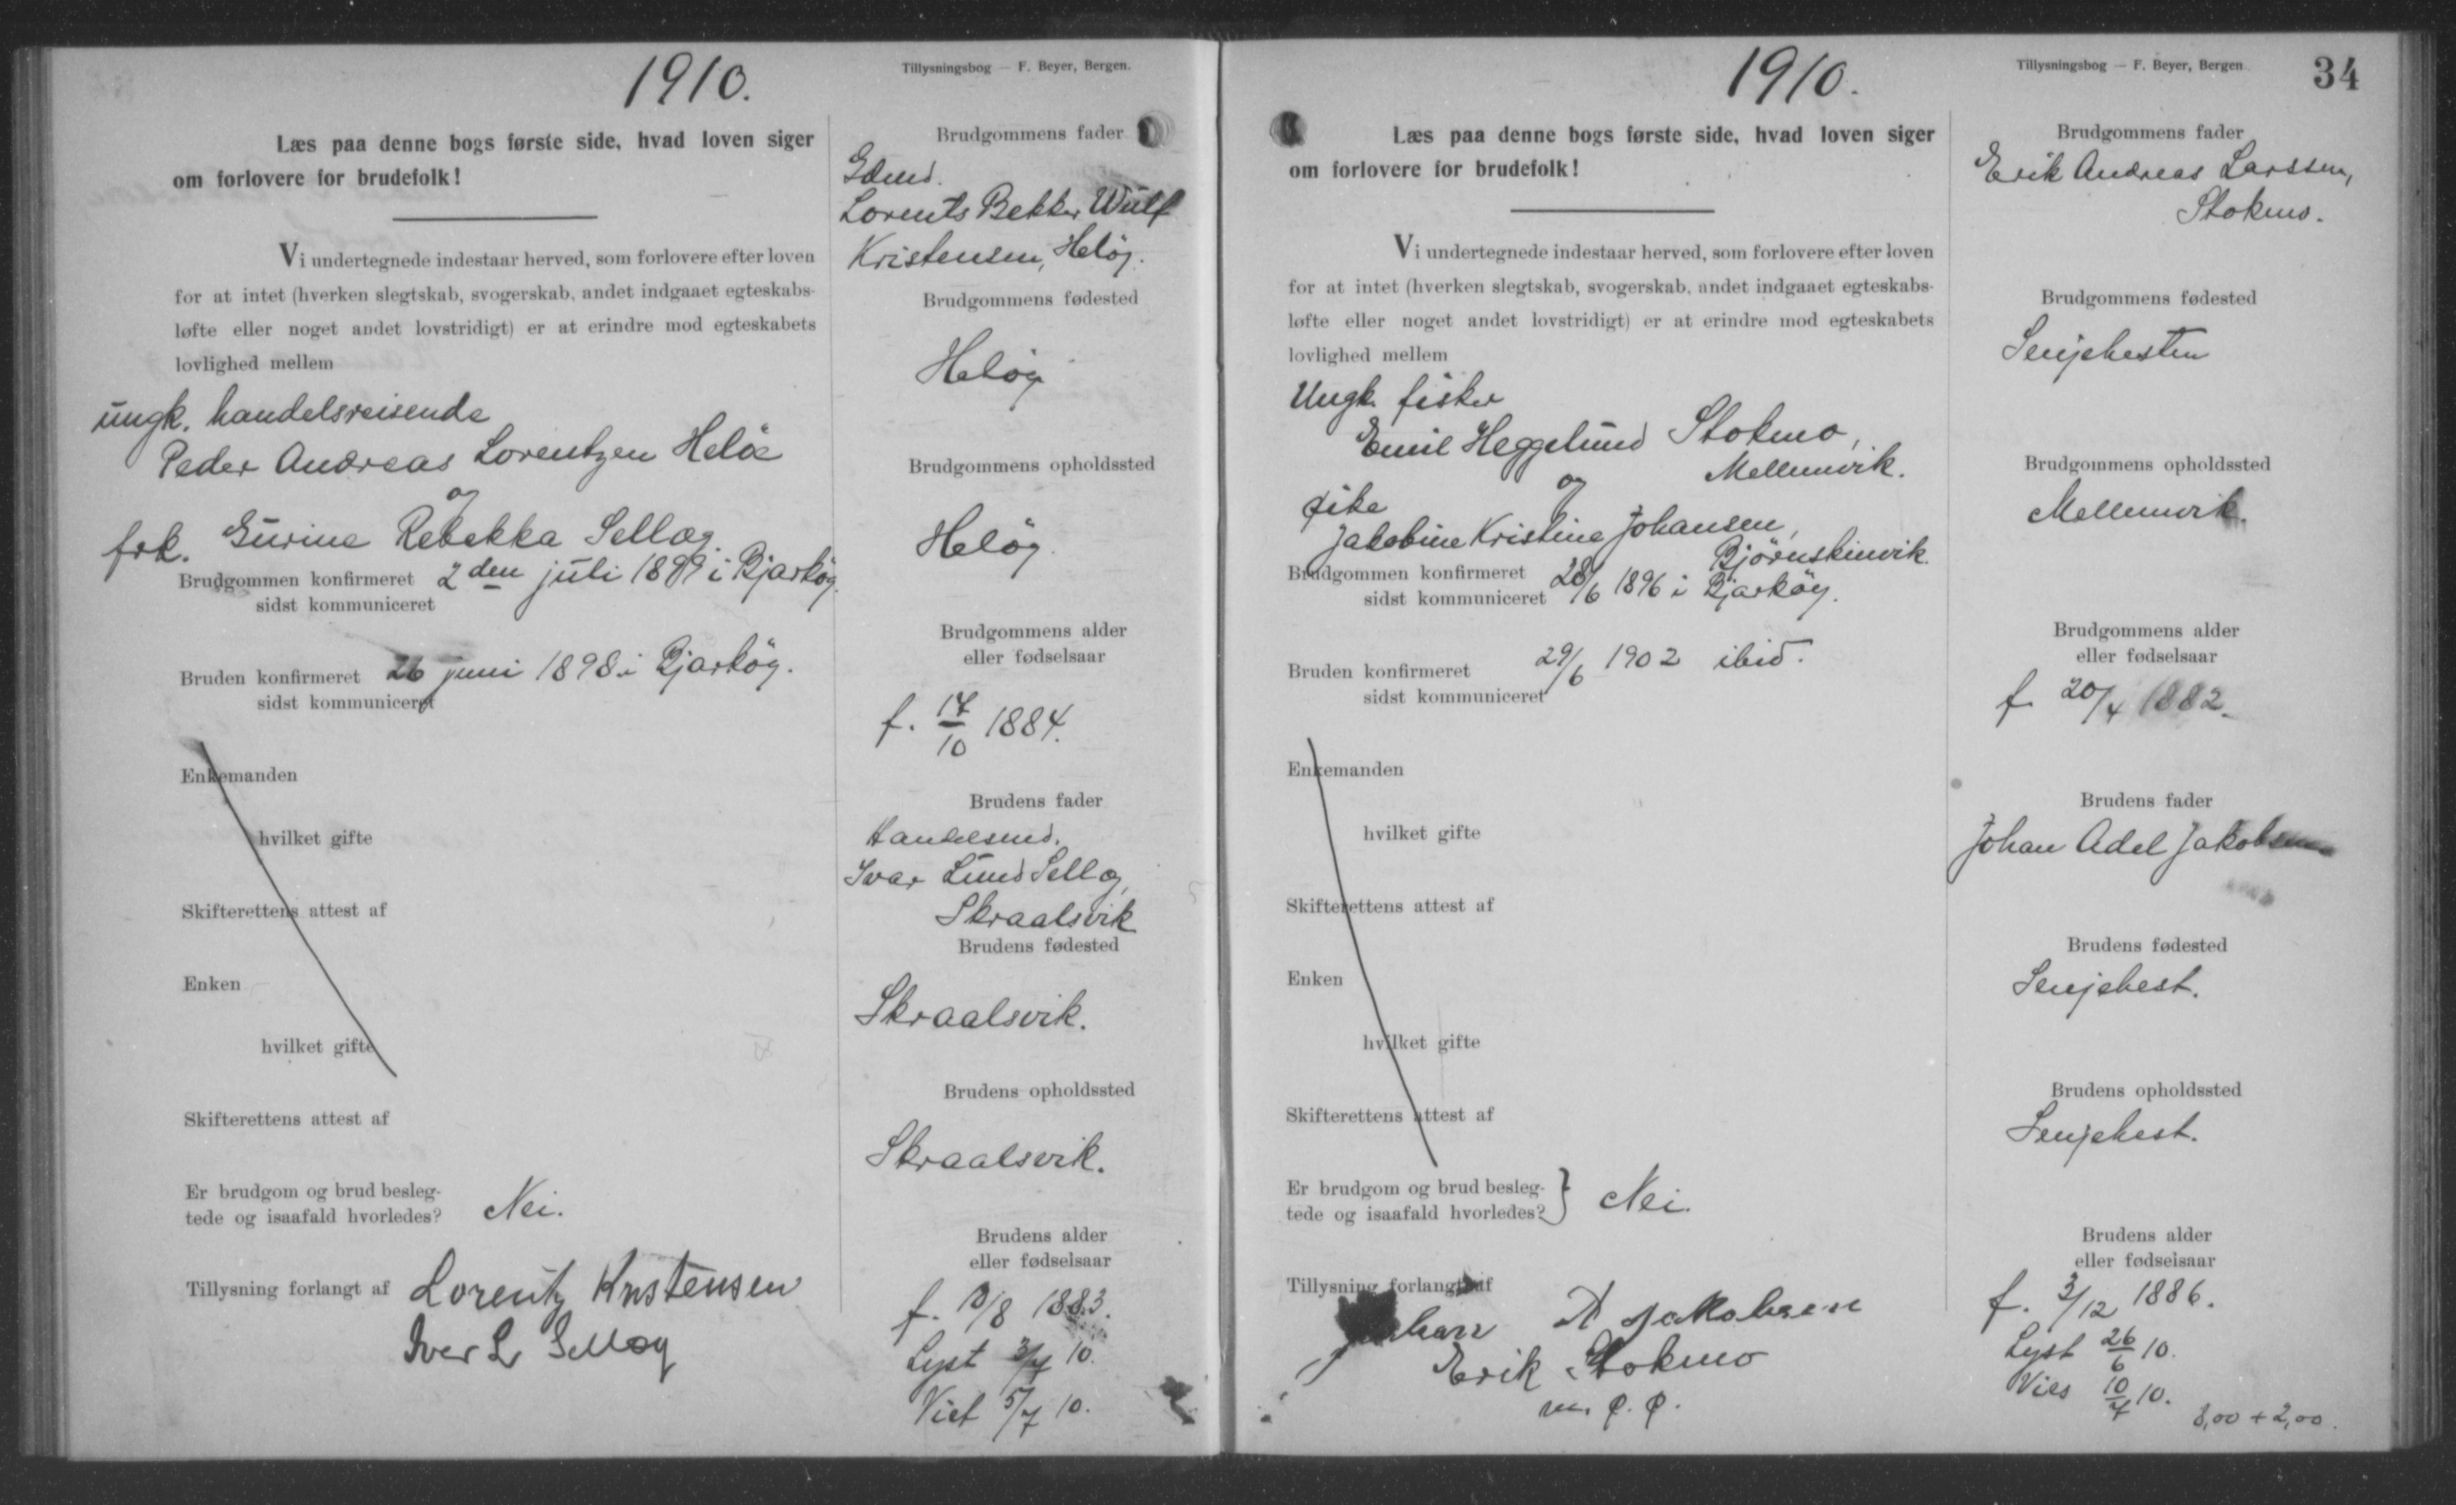 1910.
Tillysningsbog — F. Beyer, Bergen.
Læs paa denne bogs første side, hvad loven siger
om forlovere for brudefolk!
Vi undertegnede indestaar herved, som forlovere efter loven
for at intet (hverken slegtskab, svogerskab, andet indgaaet egteskabs-
løfte eller noget andet lovstridigt) er at erindre mod egteskabets
lovlighed mellem
ungk. handelsreisende
Peder Andreas Lorentzen Helöe
og
frk. Gurine Rebekka Sellæg
Brudgommen konfirmeret 2den juli 1899 i Bjarköy.
sidst kommuniceret
Bruden konfirmeret 26 juni 1898 i Bjarköy.
sidst kommuniceret
Enkemanden
hvilket gifte
Skifterettens attest af
Enken
hvilket gifte
Skifterettens attest af
Er brudgom og brud besleg-
tede og isaafald hvorledes? Nei.
Tillysning forlangt af Lorentz Kristensen
Iver L Sellæg
Brudgommens fader
Gdmd.
Lorents Bekker Wulf
Kristensen, Helöy.
Brudgommens fødested
Helöy
Brudgommens opholdssted
Helöy
Brudgommens alder
eller fødselsaar
f. 17/10 1884.
Brudens fader
Handelsmd.
Ivar Lund Sellæg,
Skraalsvik
Brudens fødested
Skraalsvik.
Brudens opholdssted
Skraalsvik.
Brudens alder
eller fødselsaar
f. 10/8 1883.
Lyst 3/7 10.
Viet 5/7 10.
1910.
Tillysningsbog — F. Beyer, Bergen.
34
Læs paa denne bogs første side, hvad loven siger
om forlovere for brudefolk!
Vi undertegnede indestaar herved, som forlovere efter loven
for at intet (hverken slegtskab, svogerskab, andet indgaaet egteskabs-
løfte eller noget andet lovstridigt) er at erindre mod egteskabets
lovlighed mellem
Ungk. fisker
Emil Heggelund Stokmo,
Mellemvik.
og
pike
Jakobine Kristine Johansen,
Bjørnskinvik.
Brudgommen konfirmeret 28/6 1896 i Bjarköy.
sidst kommuniceret
Bruden konfirmeret 29/6 1902 ibid.
sidst kommuniceret
Enkemanden
hvilket gifte
Skifterettens attest af
Enken
hvilket gifte
Skifterettens attest af
Er brudgom og brud besleg-
tede og isaafald hvorledes? } Nei.
Tillysning forlangt af
Johan A Jakobsen
Erik Stokmo
m. p. p.
Brudgommens fader
Erik Andreas Larssen,
Stokmo.
Brudgommens fødested
Senjehesten
Brudgommens opholdssted
Mellemvik.
Brudgommens alder
eller fødselsaar
f. 20/4 1882.
Brudens fader
Johan Adel Jakobsen
Brudens fødested
Senjehest.
Brudens opholdssted
Senjehest.
Brudens alder
eller fødselsaar
f. 3/12 1886.
Lyst 26/6 10.
Vies 10/7 10.
8,00 + 2,00.